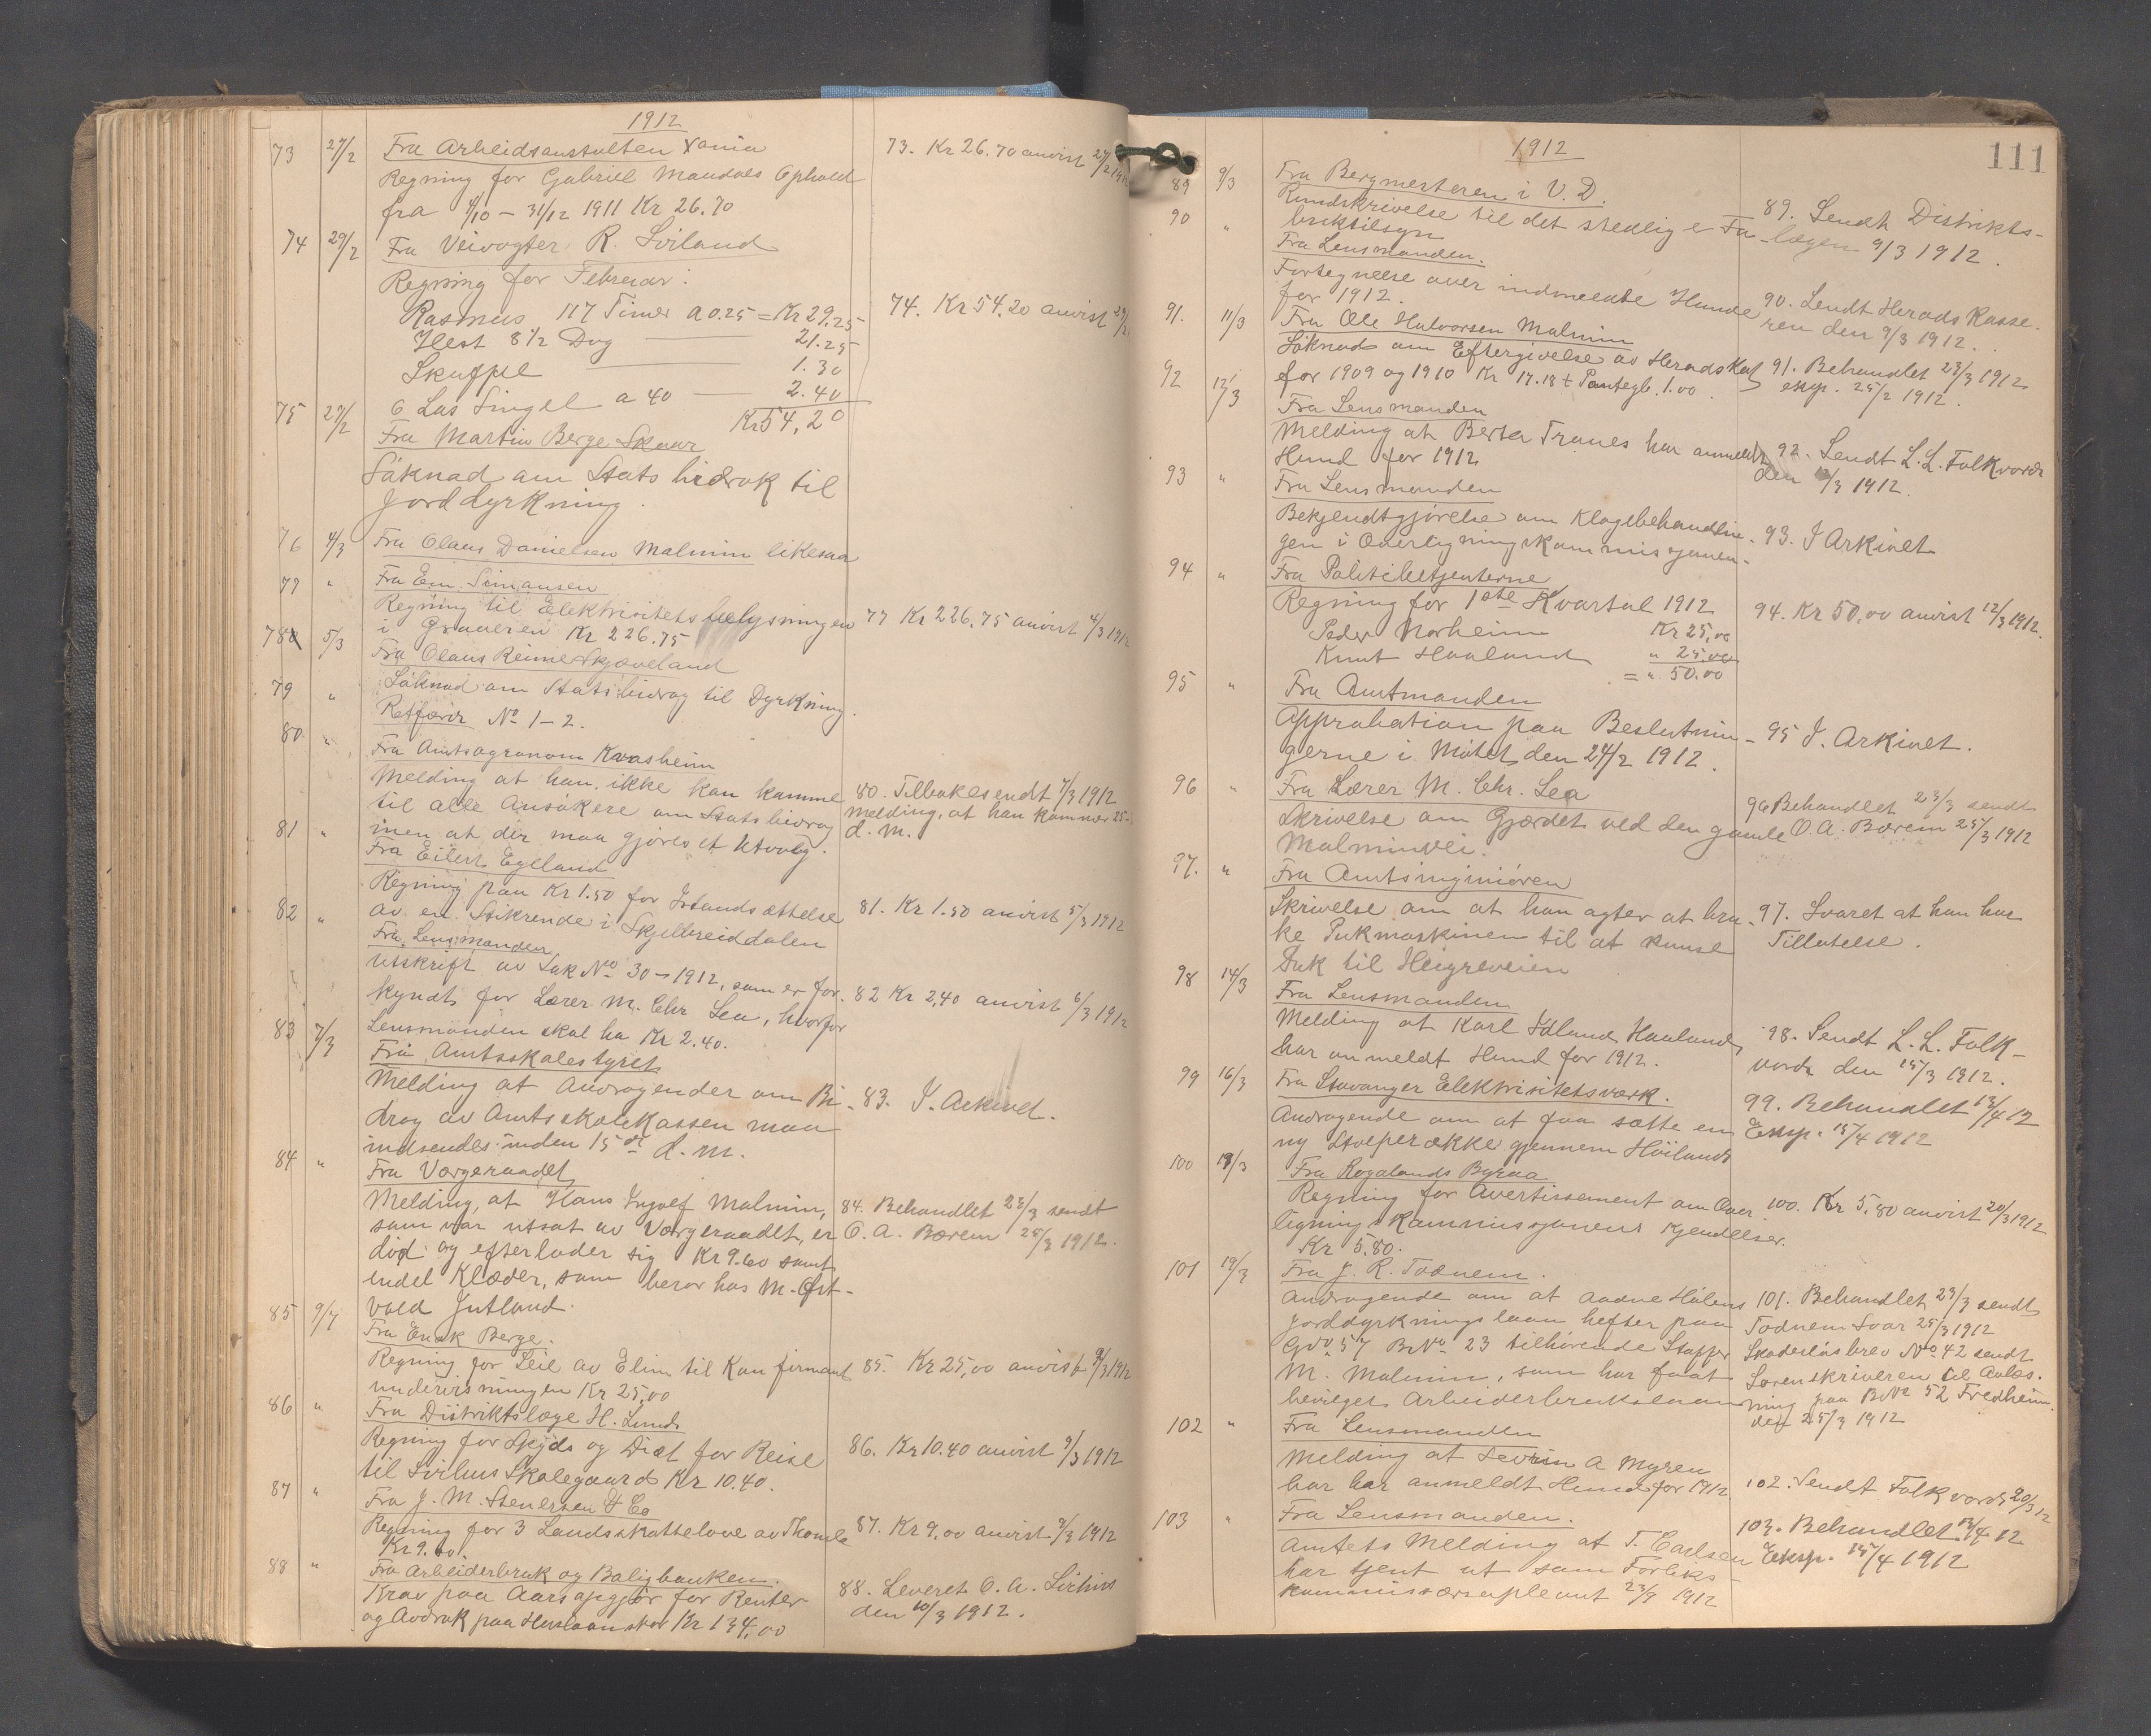 1912
73 27/2 Fra Arbeidsanstalten Xania
Regning for Gabriel Mandals Ophold
fra 4/10 – 31/12 1911 Kr 26.70
73. Kr 26.70 anvist 27/2 1912
74 29/2 Fra Veivogter R. Sviland
Regning for Februar:
Rasmus 117 Timer a 0.25 = Kr 29.25
Hest 8 1/2 Dag 21.25
Skuffel 1.30
6 Las Singel a 40 2.40
Kr 54,20
74. Kr 54.20 anvist 29/2
75 29/2 Fra Martin Berge Skaar
Søknad om Stats bidrak til
Jorddyrkning.
76 4/3 Fra Olaus Danielsen Malmin likesaa
77 " Fra Em. Simonsen
Regning til Elektrisitetsbelysningen
i Graveren Kr 226.75
77 Kr 226.75 anvist 4/3 1912
78 5/3 Fra Olaus Reime Skjæveland
Søknad om Statsbidrag til Dyrkning.
79 " Retfærd No 1–2.
80 " Fra Amtsagronom Kvasheim
Melding at han ikke kan komme
til alle Ansøkere om Statsbidrag
men at der maa gjøres et Utvalg.
80. Tilbakesendt 7/3 1912
Melding, at han kommer 25-
d. M.
81 " Fra Eilert Egeland
Regning paa Kr 1.50 for Istandsættelse
av en Stikrende i Skjelbreiddalen
81. Kr 1.50 anvist 5/3 1912
82 " Fra Lensmanden
Utskrift av Sak No 30 – 1912, som er for-
kyndt for Lærer M. Chr Lea, hvorfor
Lensmanden skal ha Kr 2.40.
82 Kr 2,40 anvist 6/3 1912
83 7/3 Fra Amtsskolestyret
Melding at Andragender om Bi-
drag av Amtsskolekassen maa
indsendes inden 15de d. M.
83. I Arkivet.
84 " Fra Værgeraadet
Melding, at Hans Ingolf Malmin,
som var utsat av Værgeraadet, er
død og efterlader sig Kr 9.60 samt
endel Klæder, som beror hos M. Øst-
vold Jutland.
84. Behandlet 23/3 sendt
O. A. Bærem 25/3 1912.
85 9/3 Fra Enok Berge.
Regning for Leie av Elim til Konfirmant
undervisningen Kr 25,00
85. Kr 25,00 anvist 9/3 1912
86 " Fra Distriktslæge H. Lund
Regning for Skyds og Diæt for Reise
til Svihus Skolegaard Kr 10.40.
86. Kr 10.40 anvist 9/3 1912
87 " Fra J. M. Stenersen & Co
Regning for 3 Landsskattelove av Thomle
Kr 9.00
87. Kr 9.00 anvist 9/3 1912
88 " Fra Arbeiderbruk og Boligbanken.
Krav paa Aarsopgjør for Renter
og Avdrak paa Huslaan stor Kr 134,00
88. Leveret O. A. Sirhus
den 10/3 1912.
111
1912
89 9/3 Fra Bergmesteren i V. D.
Rundskrivelse til det stedlige Fa-
briktilsyn
89. Sendt Distrikts-
lægen 9/3 1912.
90 " Fra Lensmanden.
Fortegnelse over indmeldte Hunde
for 1912.
90. Sendt Herads Kasse-
ren den 9/3 1912.
91. 11/3 Fra Ole Halvorsen Malmin
Søknad om Eftergivelse av Heradskat
for 1909 og 1910 Kr 17.18 + Pantegb. 1.00.
91. Behandlet 23/3 1912
eksp. 25/2 1912.
92 12/3 Fra Lensmanden
Melding at Berta Tranes har anmeldt
Hund for 1912
92. Sendt L. L. Folkvord
den 12/3 1912.
93 " Fra Lensmanden
Bekjendtgjørelse om Klagebehandlin-
gen i Overligningskommissjonen.
93. I Arkivet
94 " Fra Politibetjenterne
Regning for 1ste Kvartal 1912
Peder Norheim Kr 25,00
Knut Haaland " 25,00
= " 50.00
94. Kr 50,00 anvist 12/3 1912.
95 " Fra Amtmanden
Approbation paa Beslutnin-
gerne i Møtet den 24/2 1912.
95 I. Arkivet.
96 " Fra Lærer M. Chr. Lea
Skrivelse om Gjærdet ved den gamle
Malminvei.
96 Behandlet 23/3 sendt
O. A. Bærem 25/3 1912
97. " Fra Amtsingeniøren
Skrivelse om at han agter at bru-
ke Pukmaskinen til at knuse
Puk til Heigreveien
97. Svaret at han har
Tillatelse.
98 14/3 Fra Lensmanden
Melding at Karl Idland Haaland,
har anmeldt Hund for 1912.
98. Sendt L. L. Folk-
vord den 15/3 1912.
99 16/3 Fra Stavanger Elektrisitetsværk.
Andragende om at faa sætte en
ny Stolperække gjennem Høiland
99. Behandlet 13/4 12
Eksp. 15/4 1912
100 18/3 Fra Rogalands Byraa
Regning for Avertissement om Over
ligningskommissjonens Kjendelser.
Kr 5.80.
100. Kr 5.80 anvist 20/3 1912
101 19/3 Fra J. R. Todnem.
Andragende om at Aadne Hølens
Jorddyrkningslaan hefter paa
Gno 57 BNo 23 tilhørende Staffer
M. Malmin, som har faat
bevilget Arbeiderbrukslaan
101. Behandlet 23/3 sendt
Todnem Svar 25/3 1912
Skadesløsbrev No 42 sendt
Sorenskriveren til Avlæs-
ning paa BNo 52 Fredheim.
den 25/3 1912
102 " Fra Lensmanden
Melding at Sevrin A Myren
har har anmeldt Hund for 1912
102. Sendt Folkvord 20/3 12
103 " Fra Lensmanden.
Amtets Melding at T. Carlsen
har tjent ut som Forliks-
kommissærsupleant 23/3 1912
103. Behandlet 13/4 12
Eksp. 15/4 1912